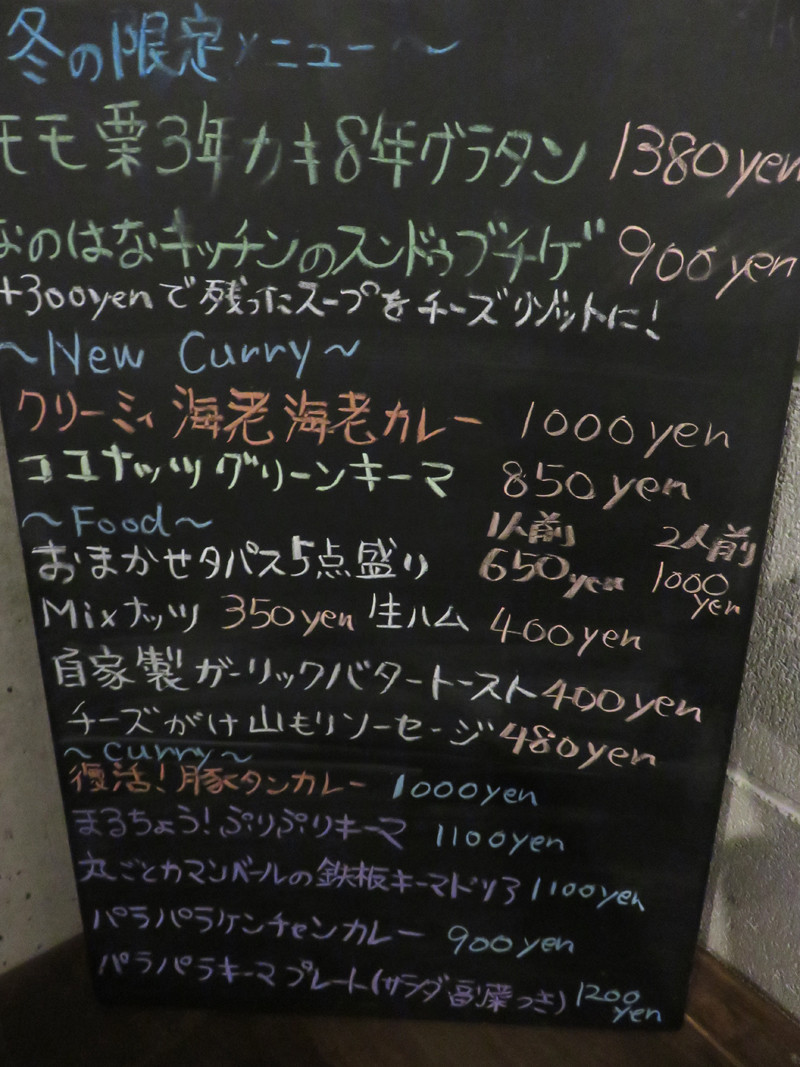 冬の限定メニュー〜
モモ栗3年カキ8年グラタン 1380yen
なのはなキッチンのスンドゥブチゲ 900yen
+300yenで残ったスープをチーズリゾットに!
〜New Curry〜
クリーミィ海老海老カレー 1000yen
ココナッツグリーンキーマ 850yen
〜Food〜 1人前 2人前
おまかせタパス5点盛り 650yen 1000yen
Mixナッツ 350yen 生ハム 400yen
自家製ガーリックバタートースト 400yen
チーズがけ山もりソーセージ 480yen
〜curry〜
復活!豚タンカレー 1000yen
まるちょう!ぷりぷりキーマ 1100yen
丸ごとカマンベールの鉄板キーマドリア 1100yen
パラパラケンチャンカレー 900yen
パラパラキーマプレート(サラダ副菜つき) 1200yen